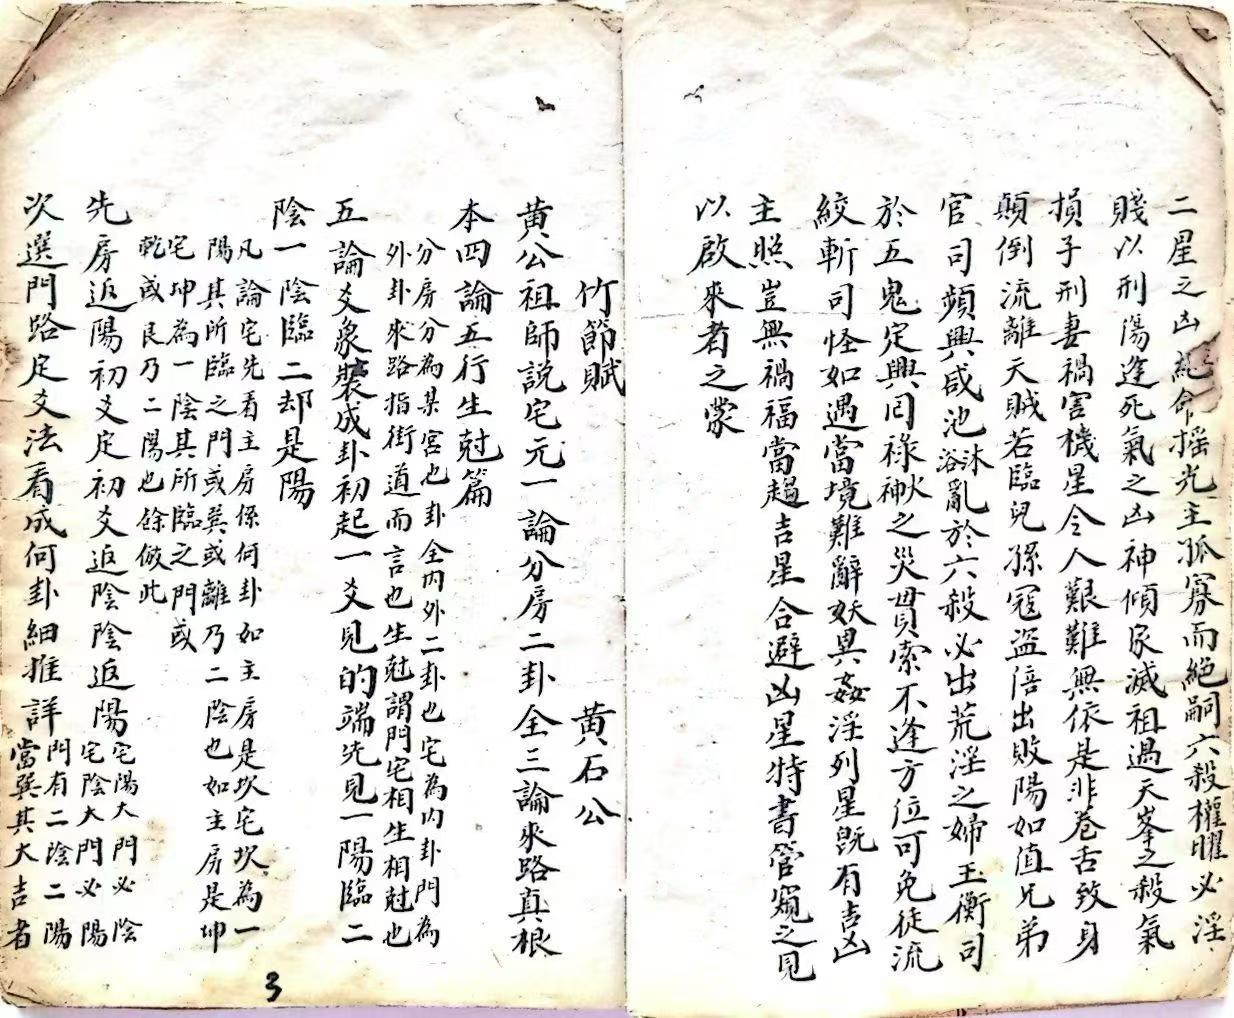 二星之凶絕命摇光主孤寡而絕嗣六殺權曜必淫
賤以刑傷逢死氣之凶神傾家滅祖遇天峯之殺氣
損子刑妻禍害機星令人艱難無依是非卷舌致身
顛倒流離天賊若臨兒孫冦盜倍出敗陽如值兄弟
官司頻興咸池沐浴亂於六殺必出荒淫之婦玉衡司
於五鬼定興囘祿火神之災貫索不逢方位可免徒流
絞斬司怪如遇當境難辭妖異姦淫列星既有吉凶
主照豈無禍福當趨吉星合避凶星特書管窺之見
以啟來者之蒙
竹節賦 黄石公
黄公祖師説宅元一論分房二卦全三論來路真根
本四論五行生尅篇
分房分為某宮也卦全内外二卦也宅為内卦門為
外卦來路指街道而言也生尅謂門宅相生相尅也
五論爻象裝成卦初起一爻見的端先見一陽臨二
陰一陰臨二却是陽
凡論宅先看主房係何卦如主房是坎宅坎為一
陽其所臨之門或巽或離乃二陰也如主房是坤
宅坤為一陰其所臨之門或
乾或艮乃二陽也餘倣此
先房返陽初爻定初爻返陰陰返陽宅陽大門必陰
宅陰大門必陽
次選門路定爻法看成何卦細推詳門有二陰二陽
當巽其大吉者
3